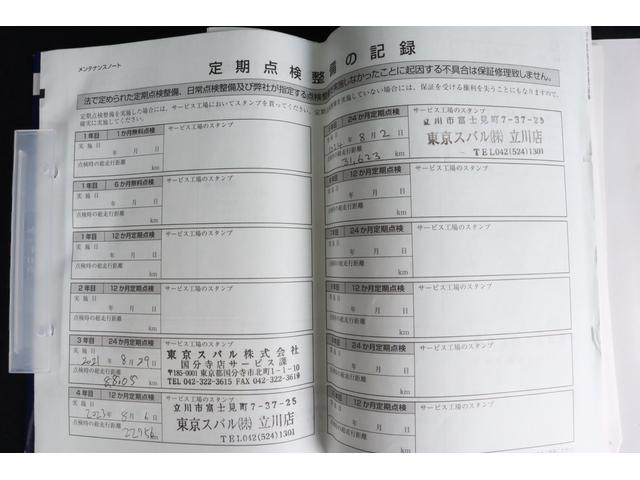 メンテナンスノート
定期点検整備の記録
法で定められた定期点検整備、日常点検整備及び弊社が指定する点検整備を実施しなかったことに起因する不具合は保証修理致しません。
定期点検整備を実施した場合には、サービス工場においてスタンプを貰ってください。
確実に実施してください。
1年目 1か月無料点検
サービス工場のスタンプ
実施日
年 月 日
点検時の総走行距離
km
1年目 6か月無料点検
サービス工場のスタンプ
実施日
年 月 日
点検時の総走行距離
km
1年目 12か月定期点検
サービス工場のスタンプ
実施日
年 月 日
点検時の総走行距離
km
2年目 12か月定期点検
サービス工場のスタンプ
実施日
年 月 日
点検時の総走行距離
km
3年目 24か月定期点検
サービス工場のスタンプ
実施日
2021年 8月29日
点検時の総走行距離
km
東京スバル株式会社
国分寺店サービス課
〒185-0001 東京都国分寺市北町1-1-10
TEL 042-322-3615 FAX 042-322-3619
4年目 12か月定期点検
サービス工場のスタンプ
実施日
2023年 8月6日
点検時の総走行距離
22956km
立川市富士見町7-37-25
東京スバル㈱立川店
TEL042(524)1301
整備を実施していない場合には、保証を受ける権利を失うことにもなりますので、
24か月定期点検
2024年 8月2日
31,623
km
立川市富士見町7-37-25
東京スバル㈱立川店
TEL042(524)1301
12か月定期点検
サービス工場のスタンプ
年 月 日
km
24か月定期点検
サービス工場のスタンプ
年 月 日
km
12か月定期点検
サービス工場のスタンプ
年 月 日
km
24か月定期点検
サービス工場のスタンプ
年 月 日
km
12か月定期点検
サービス工場のスタンプ
年 月 日
km